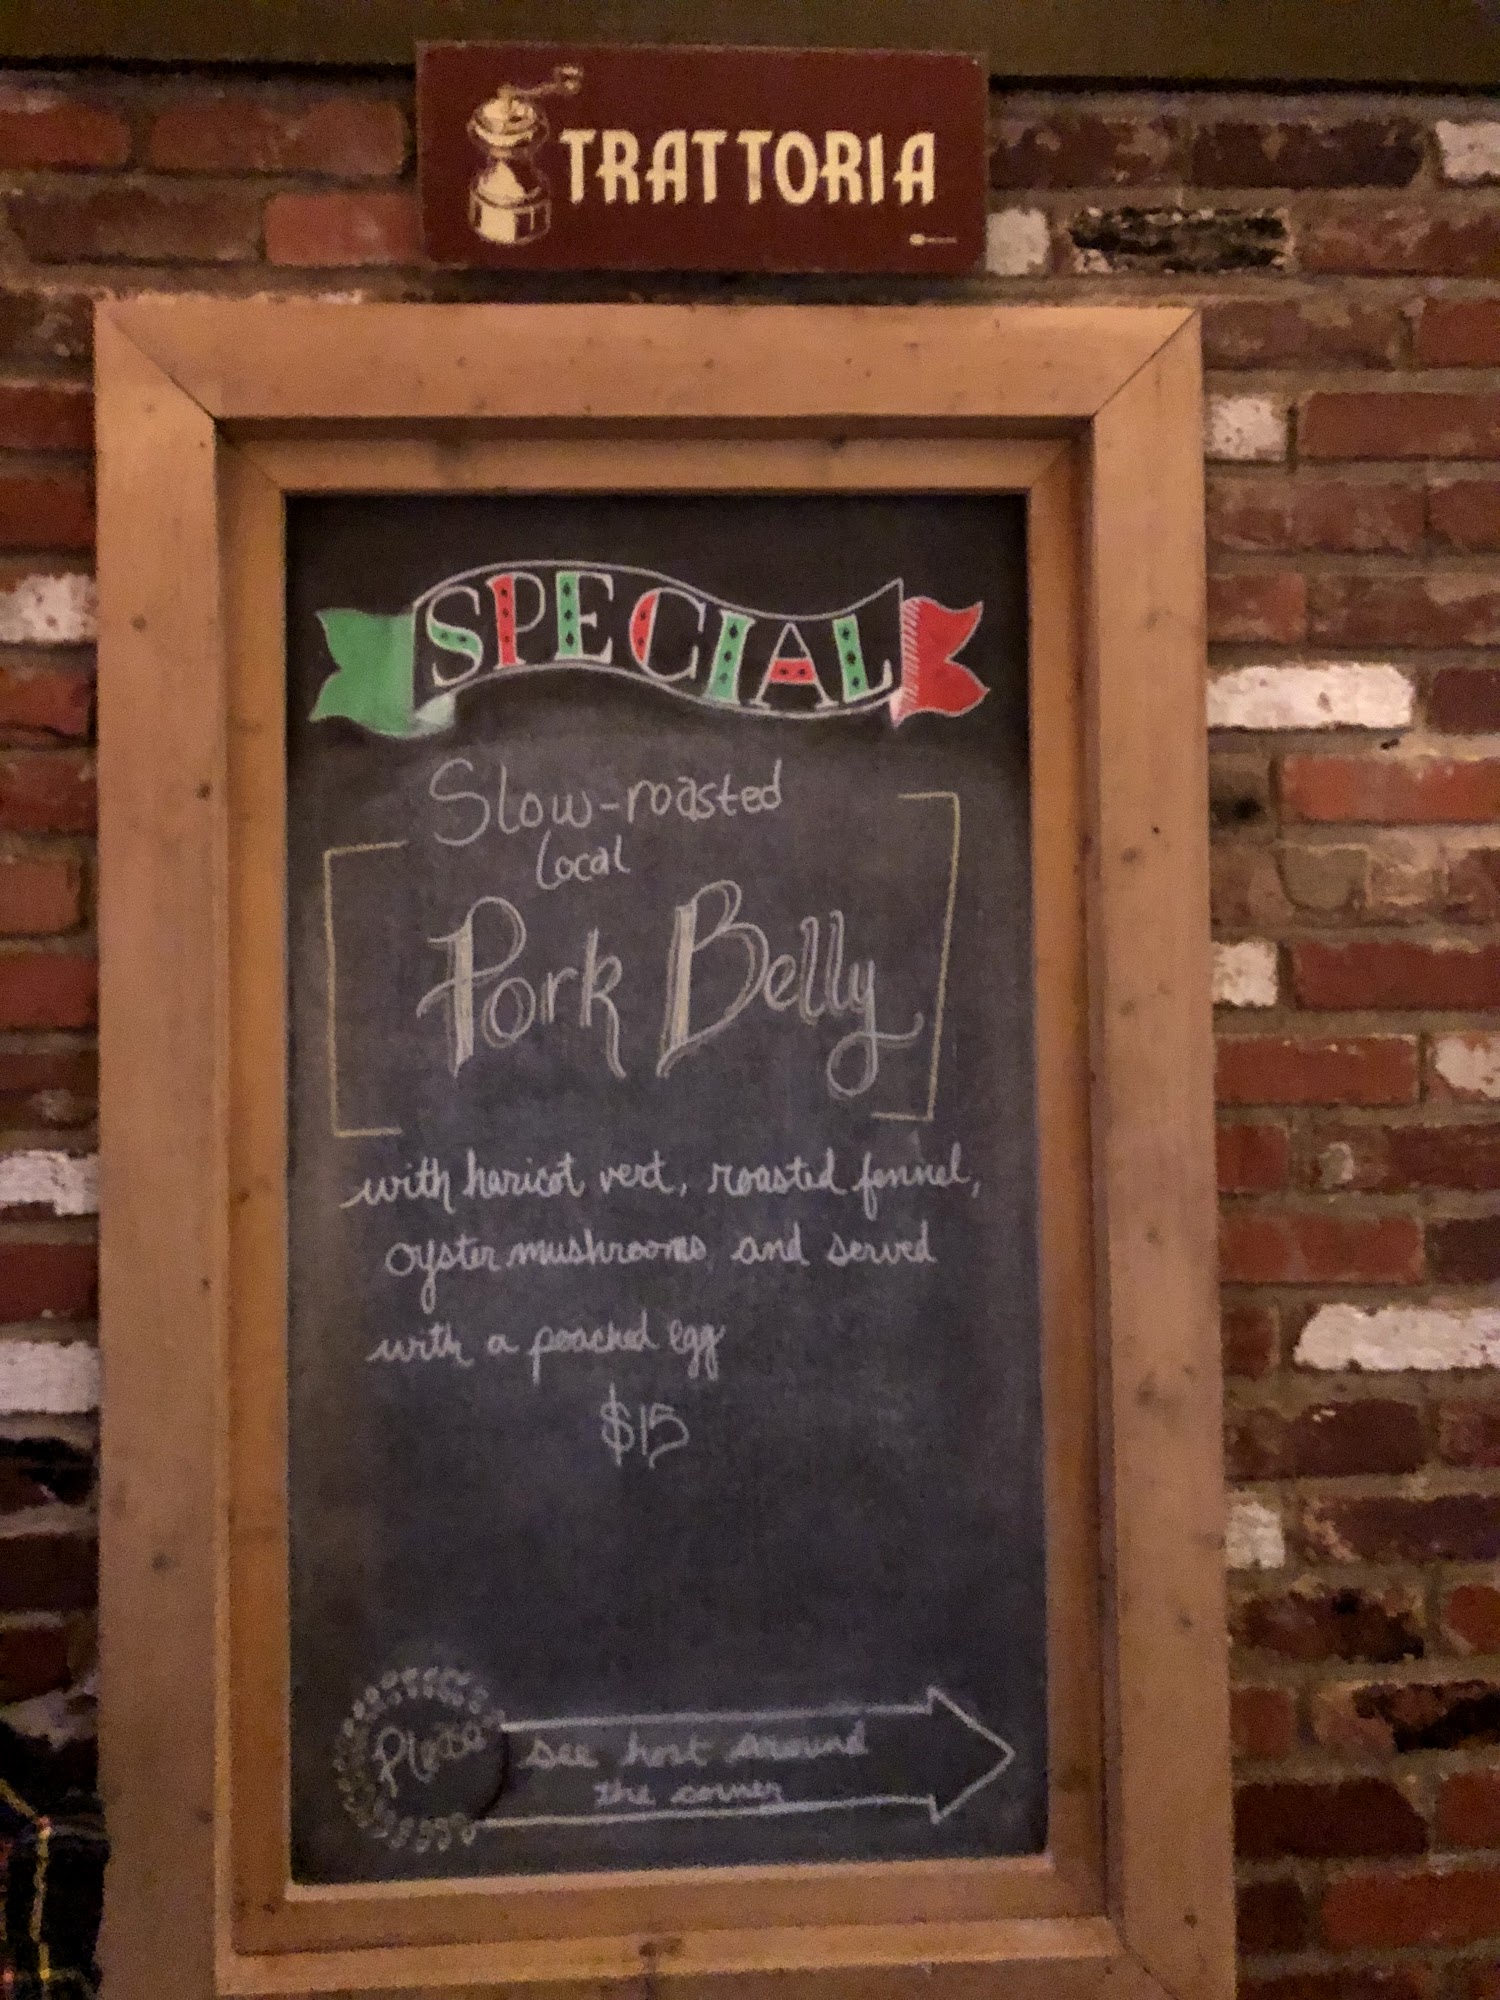 TRATTORIA
SPECIAL
Slow-roasted
local
Pork Belly
with haricot vert, roasted fennel,
oyster mushrooms and served
with a poached egg
$15
Please
see host around
the corner